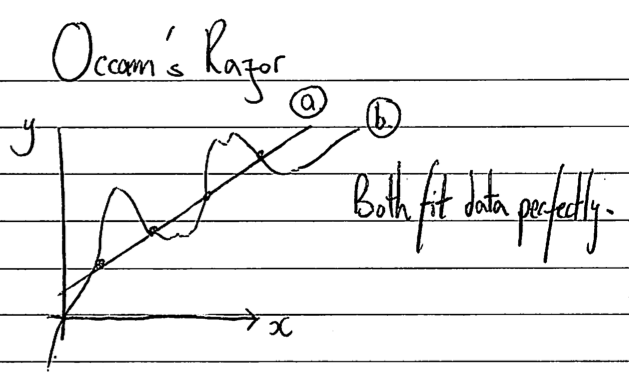 Occam's Razor
a
y
b
Both fit data perfectly.
x